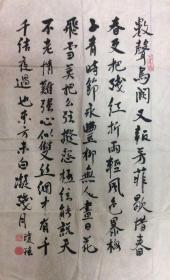 數聲
又報芳菲歇惜
春更把殘紅折雨輕風色暴梅
子青時節永豐柳無人盡日花
飛雪莫把幺弦撥怨極弦能說天
不老情難絕心似雙絲網中有千
千結夜過也東方未白凝殘月